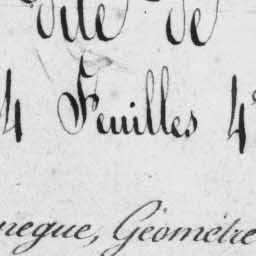 dite de
4 Feuilles 4e
negue, Géomètre